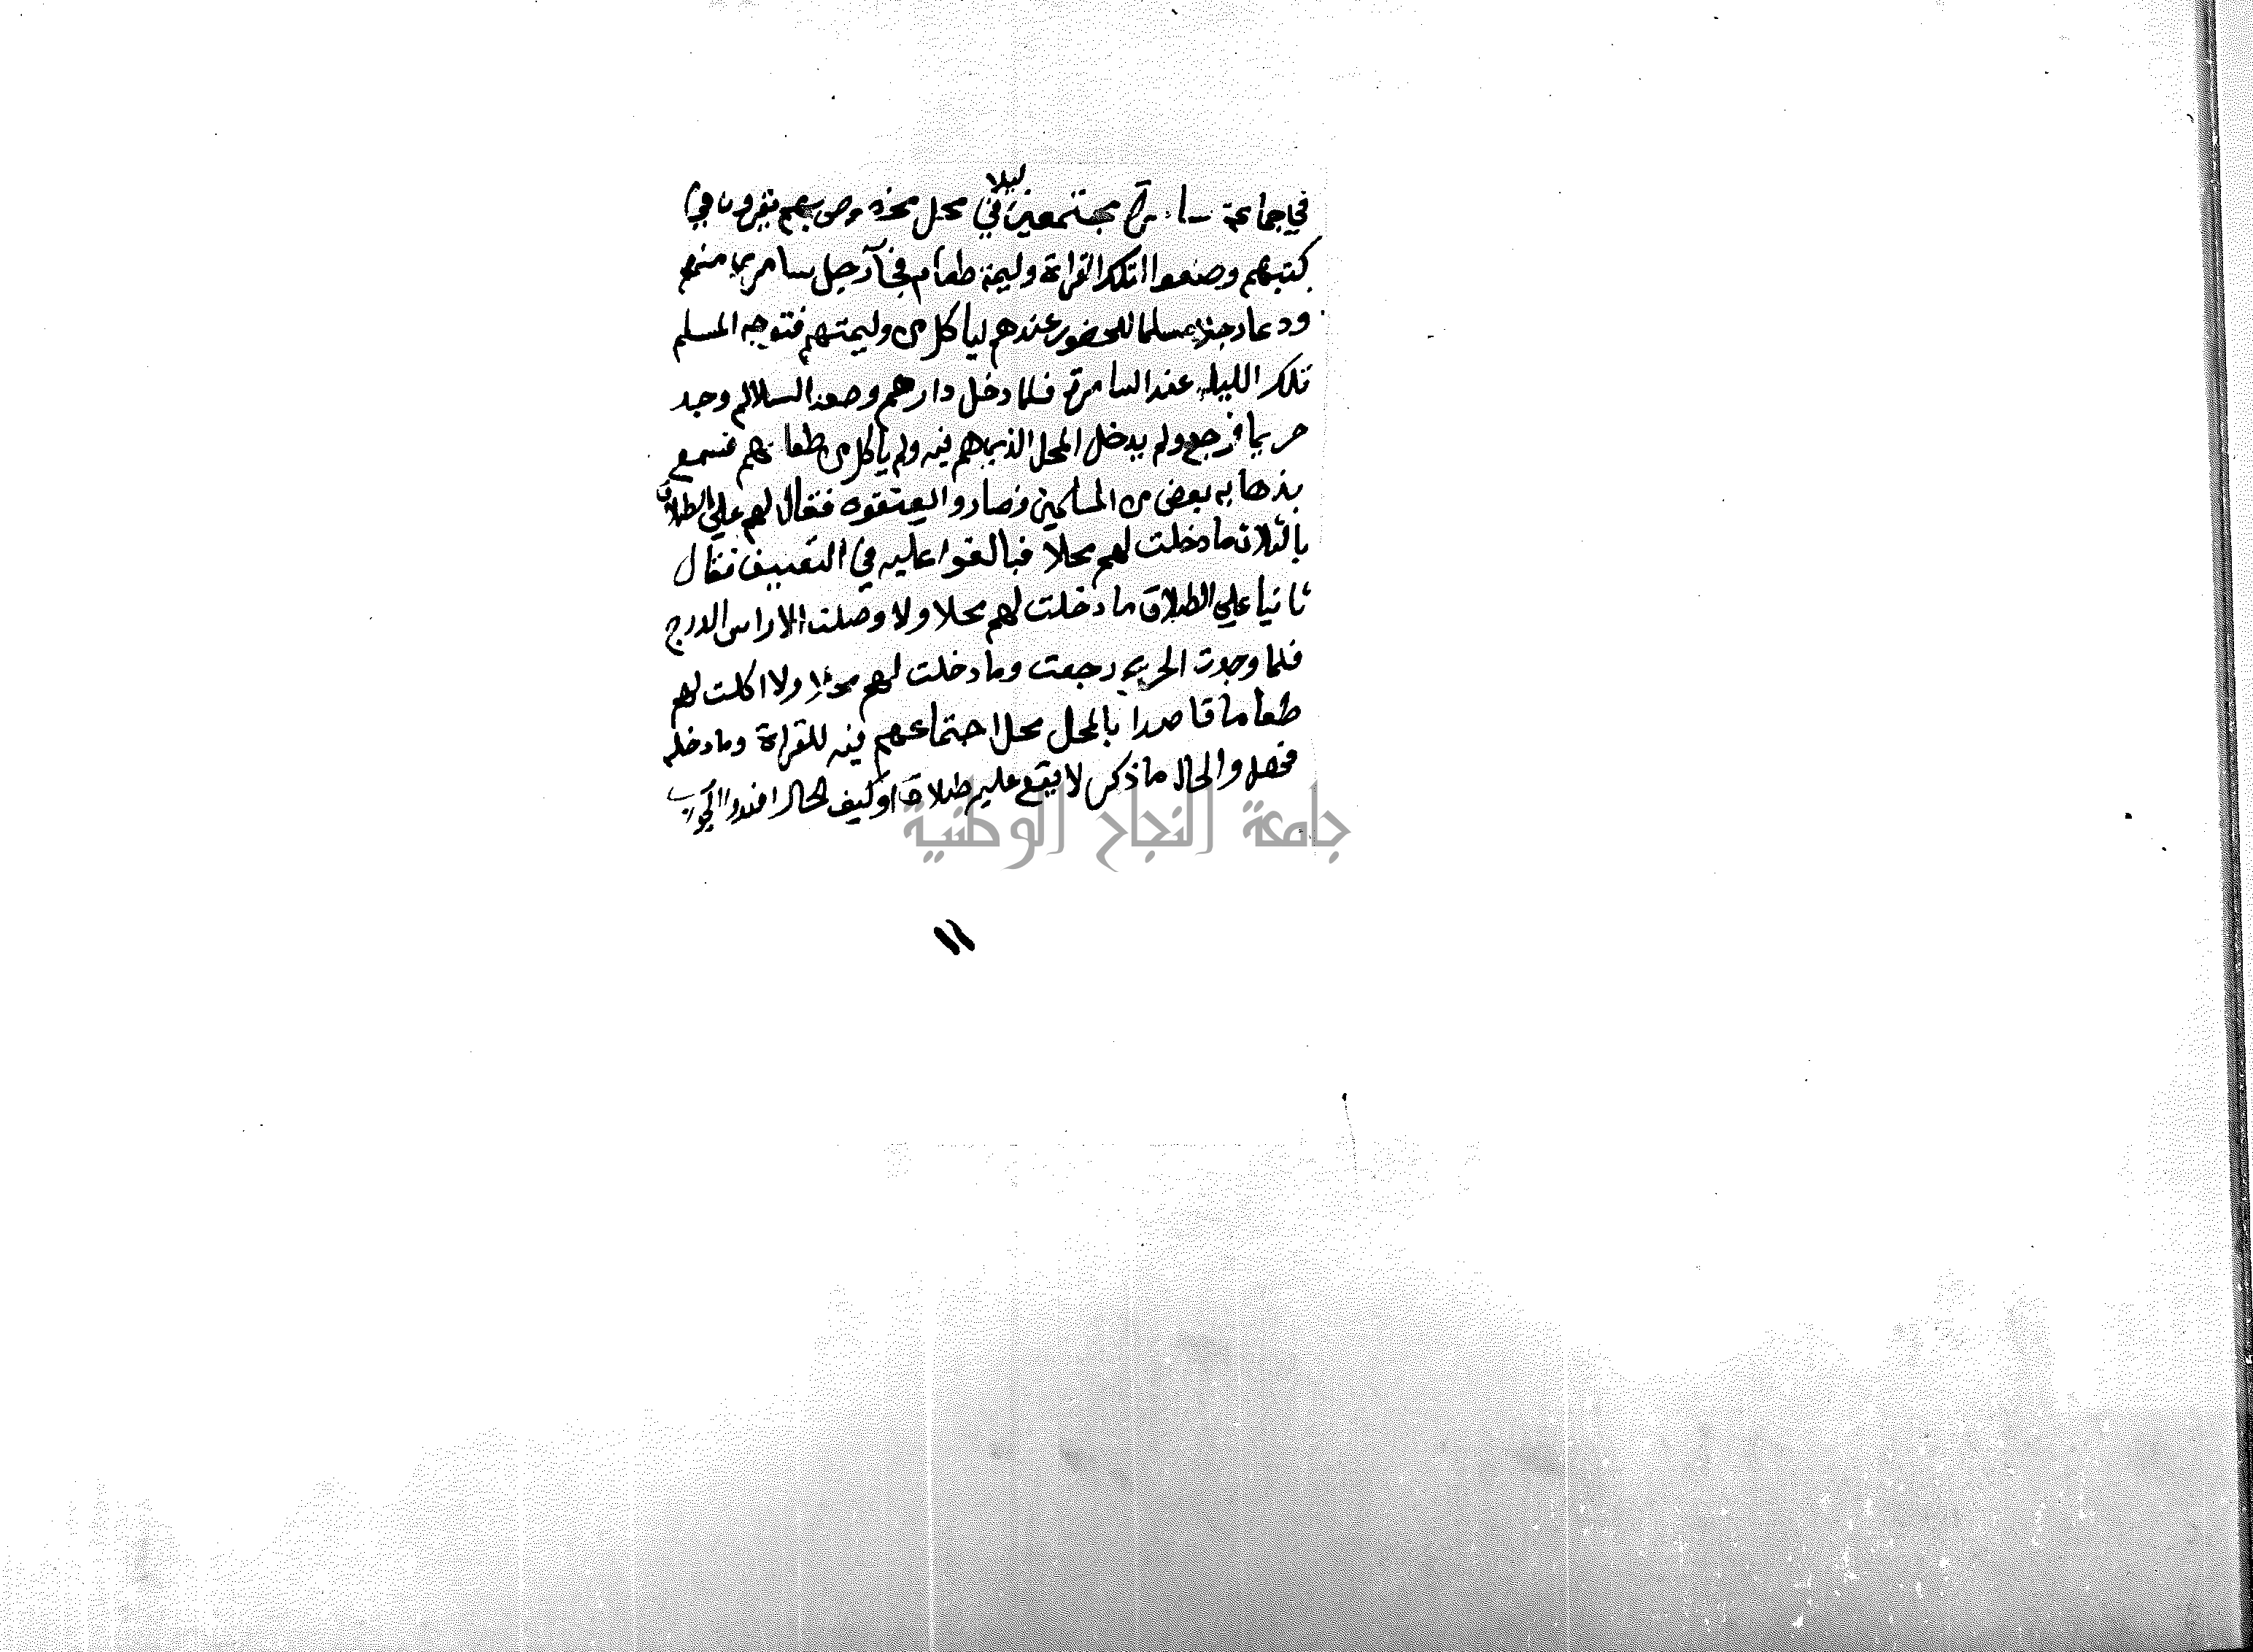 ليلا
في جماعة سامرة مجتمعين في محل مخصوص بهم يقرون في
كتبهم وصنعوا لتلك القراءة وليمة طعام فجآ رجل سامري منهم
ودعا رجلا مسلما للحضور عندهم لياكل من وليمتهم فتوجه المسلم
تلك الليلة عند السامرة فلما دخل دارهم وصعد السلالم وجد
حريما فرجع ولم يدخل المحل الذي هم فيه ولم ياكل من طعامهم فسمع
بذهابه بعض من المسلمين فصاروا يعنفوه فقال لهم علي الطلاق
بالثلاث ما دخلت لهم محلا فبالغوا عليه في التعنيف فقال
ثانيا علي الطلاق ما دخلت لهم محلا ولا وصلت الا راس الدرج
فلما وجدت الحريم رجعت وما دخلت لهم محلا ولا اكلت لهم
طعاما قاصدا بالمحل محل اجتماعهم فيه للقراءة وما دخله
فهل والحال ما ذكر لا يقع عليه طلاق او كيف الحال افيدوا الجواب
جامعة النجاح الوطنية
١١